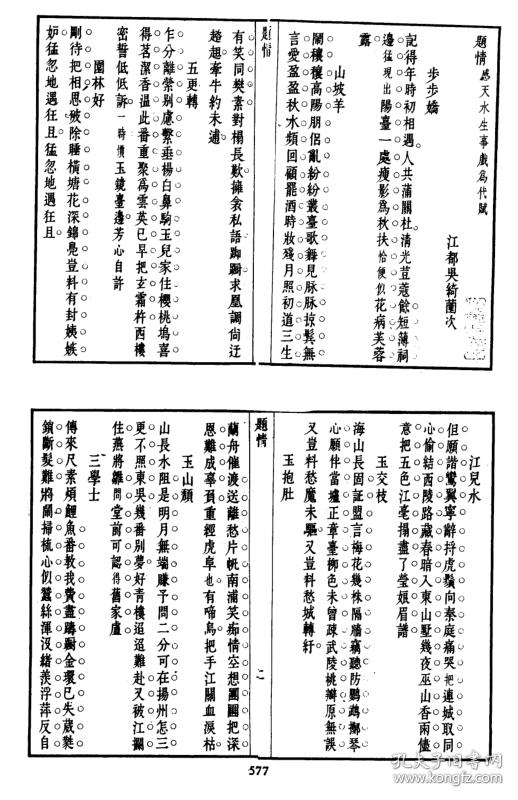 題情感天水生事戲為代賦
江都吳綺薗次
步步嬌
記得年時初相遇人共蒲關杜清光荳蔻餘短簿祠
邊猛現出陽臺一處瘦影為秋扶恰便似花病芙蓉
露
山坡羊
鬧穰穰高陽朋侶亂紛紛叢臺歌舞見脉脉掠鬂無
言愛盈盈秋水頻回顧罷酒時妝殘月照初道三生
題情
有笑同樊素對楊長歎擁衾私語踟躕求凰調尚迂
趦趄牽牛約未逋
五更轉
乍分離縈別慮繫垂楊白鼻騧玉兒家住櫻桃塢喜
得茗潔香溫此番重聚為雲英已早把玄霜杵西樓
密誓低低訴一時憤玉鏡臺邊芳心自許
園林好
剛待把相思破除睡橫塘花深錦鳧豈料有封姨嫉
妬猛忽地遇狂且猛忽地遇狂且
江兒水
但願諧鸞翼寧辭捋虎鬚向秦庭痛哭把連城取同
心偷結西陵路藏春暗入東山墅幾夜巫山香雨儘
意把五色江毫搨盡了瑩娘眉譜
玉交枝
海山長固証盟言梅花幾株隔牆竊聽防鸚鵡擲琴
心願伴當壚正章臺柳色未曾疎武陵桃瓣原無誤
又豈料愁魔未驅又豈料愁城轉紆
玉抱肚
題情 二
蘭舟催渡送離愁片帆南浦笑痴情空想團圞把深
恩難成辜負重經虎阜也有啼烏把手江關血淚枯
玉山頹
山長水阻是明月無端賺予問二分可在揚州怎三
更不照東吳幾番別夢好青樓迢迢難赴又被江攔
住燕將雛問堂前可認得舊家廬
三學士
傳來尺素煩鯉魚番教我費盡躊躇金環已失葳蕤
鎖斷髮難將蘭掃梳心似蠶絲渾沒緒羨浮萍反自
577
孔夫子旧书网